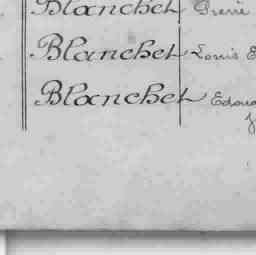 Blanchet Pierre
Blanchet Louis E
Blanchet Edoua